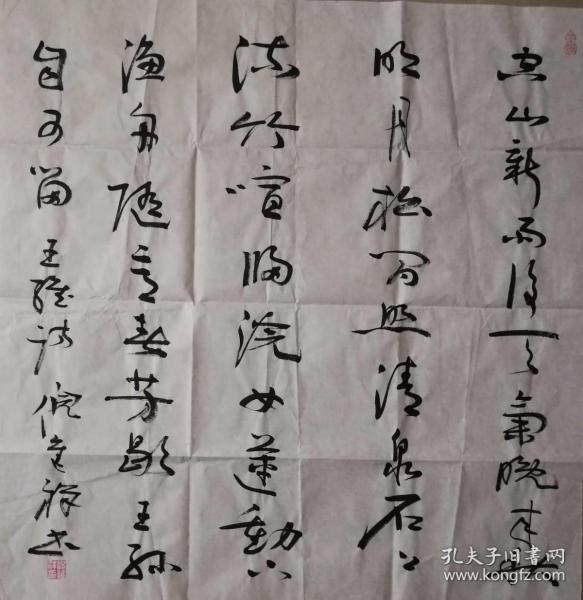 空山新雨後天氣晚来秋
明月松间照清泉石上
流竹喧歸浣女蓮動下
漁舟隨意春芳歇王孫
自可留王維詩倪祥书
孔夫子旧书网
www.kongfz.com